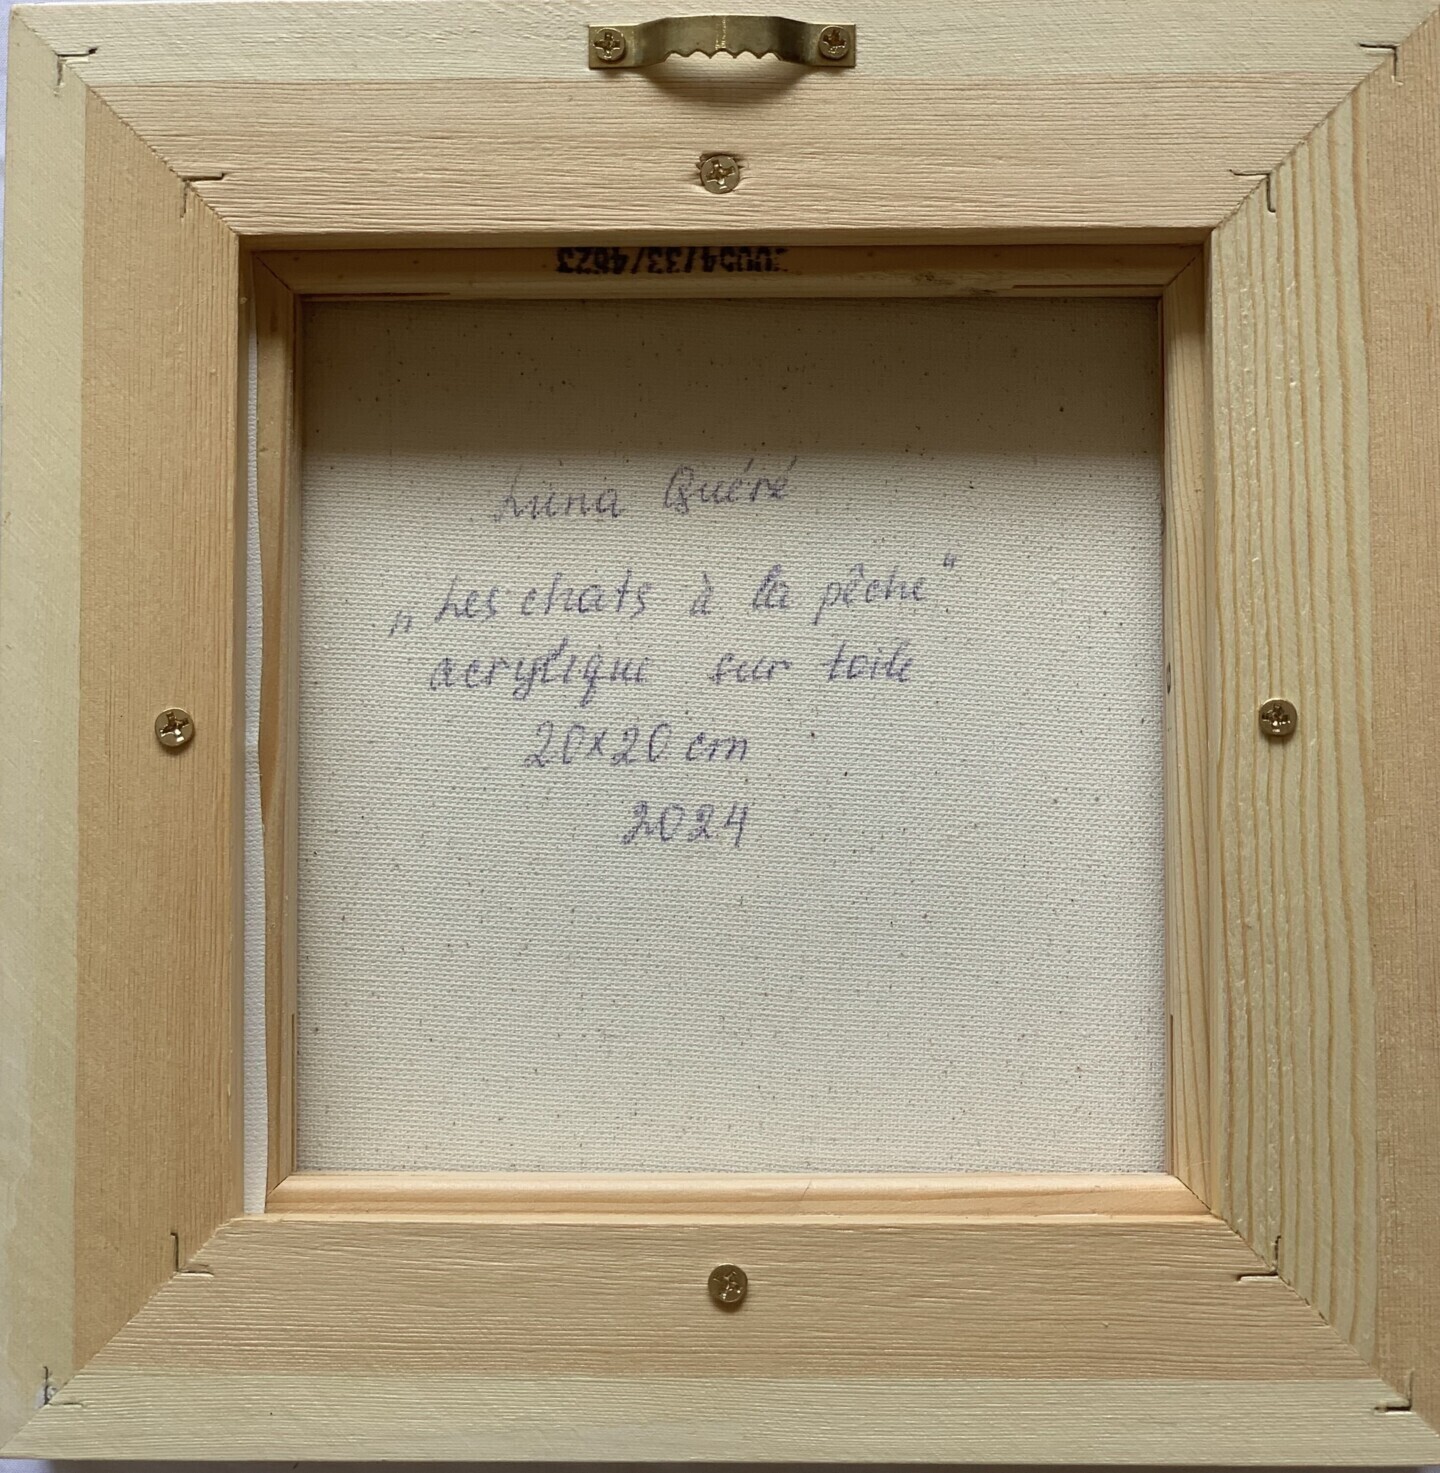 Luna Quéré
„Les chats à la pêche“
acrylique sur toile
20x20 cm
2024